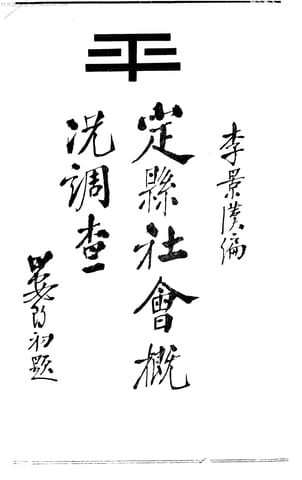 平
李景漢編
定縣社會概
况調查
晏陽初題